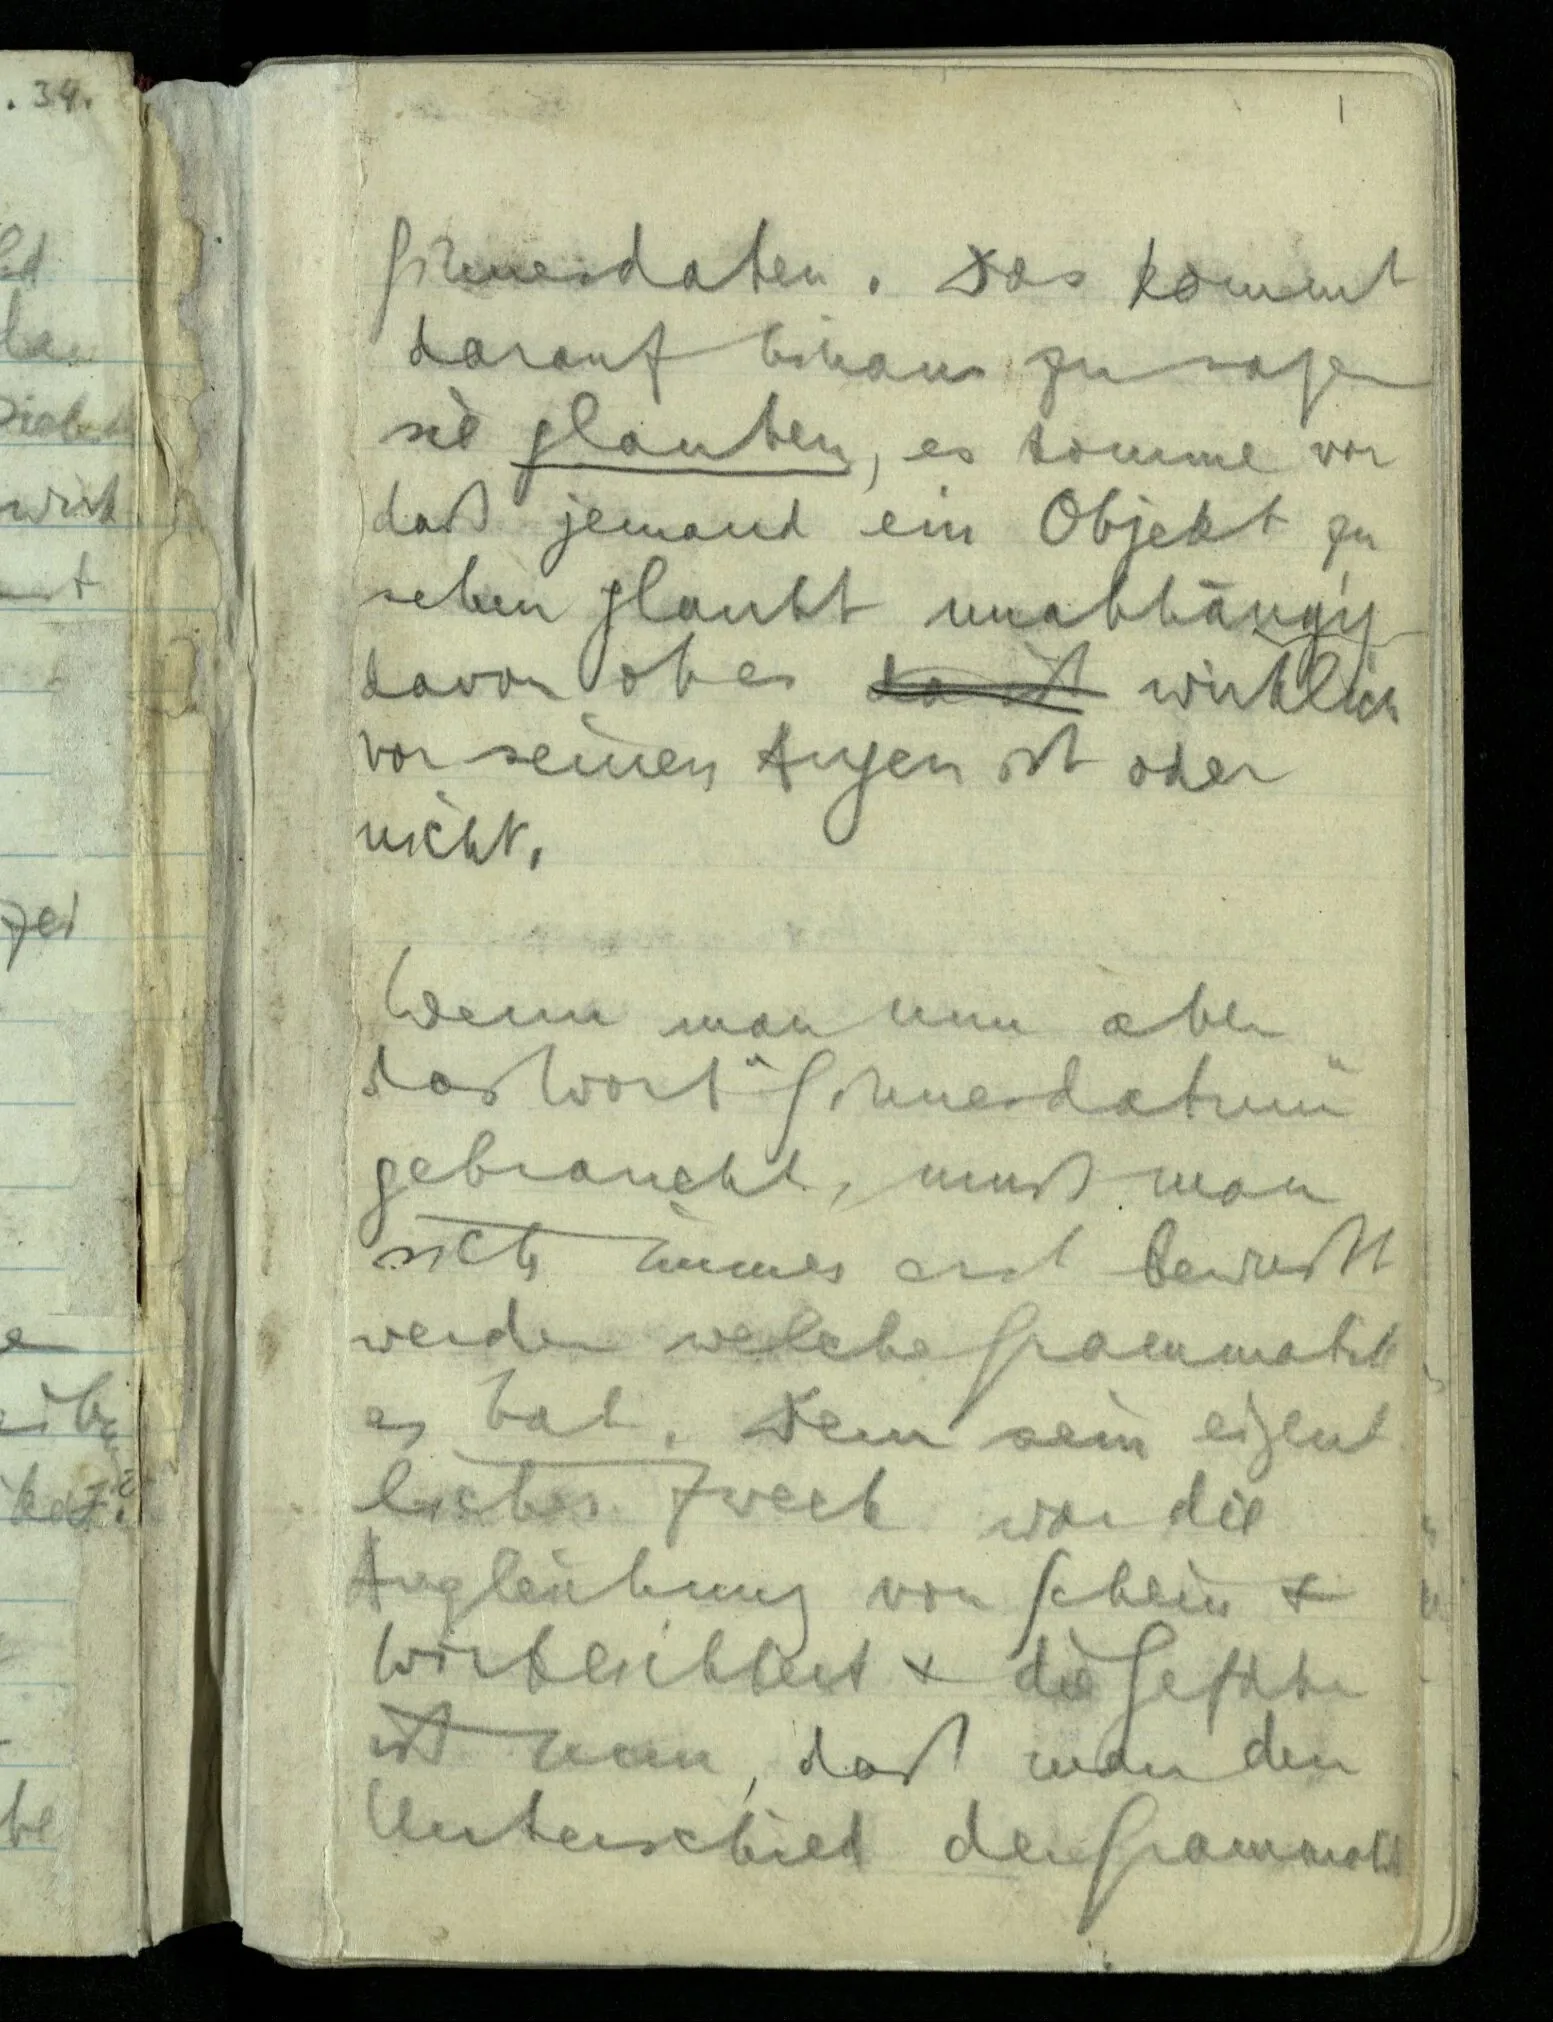 . 34.
1
Sinnesdaten. Das kommt
darauf hinaus zu sagen
sie glauben, es komme vor
daß jemand ein Objekt zu
sehen glaubt unabhängig
davon ob es da ist wirklich
vor seinen Augen ist oder
nicht.
Wenn man nun aber
das Wort "Sinnesdatum"
gebraucht, muß man
sich immer erst bewußt
werden welche Grammatik
es hat. Denn sein eigent
licher Zweck war die
Angleichung von Schein &
Wirklichkeit & die Gefahr
ist nun, daß man den
Unterschied der Grammatik